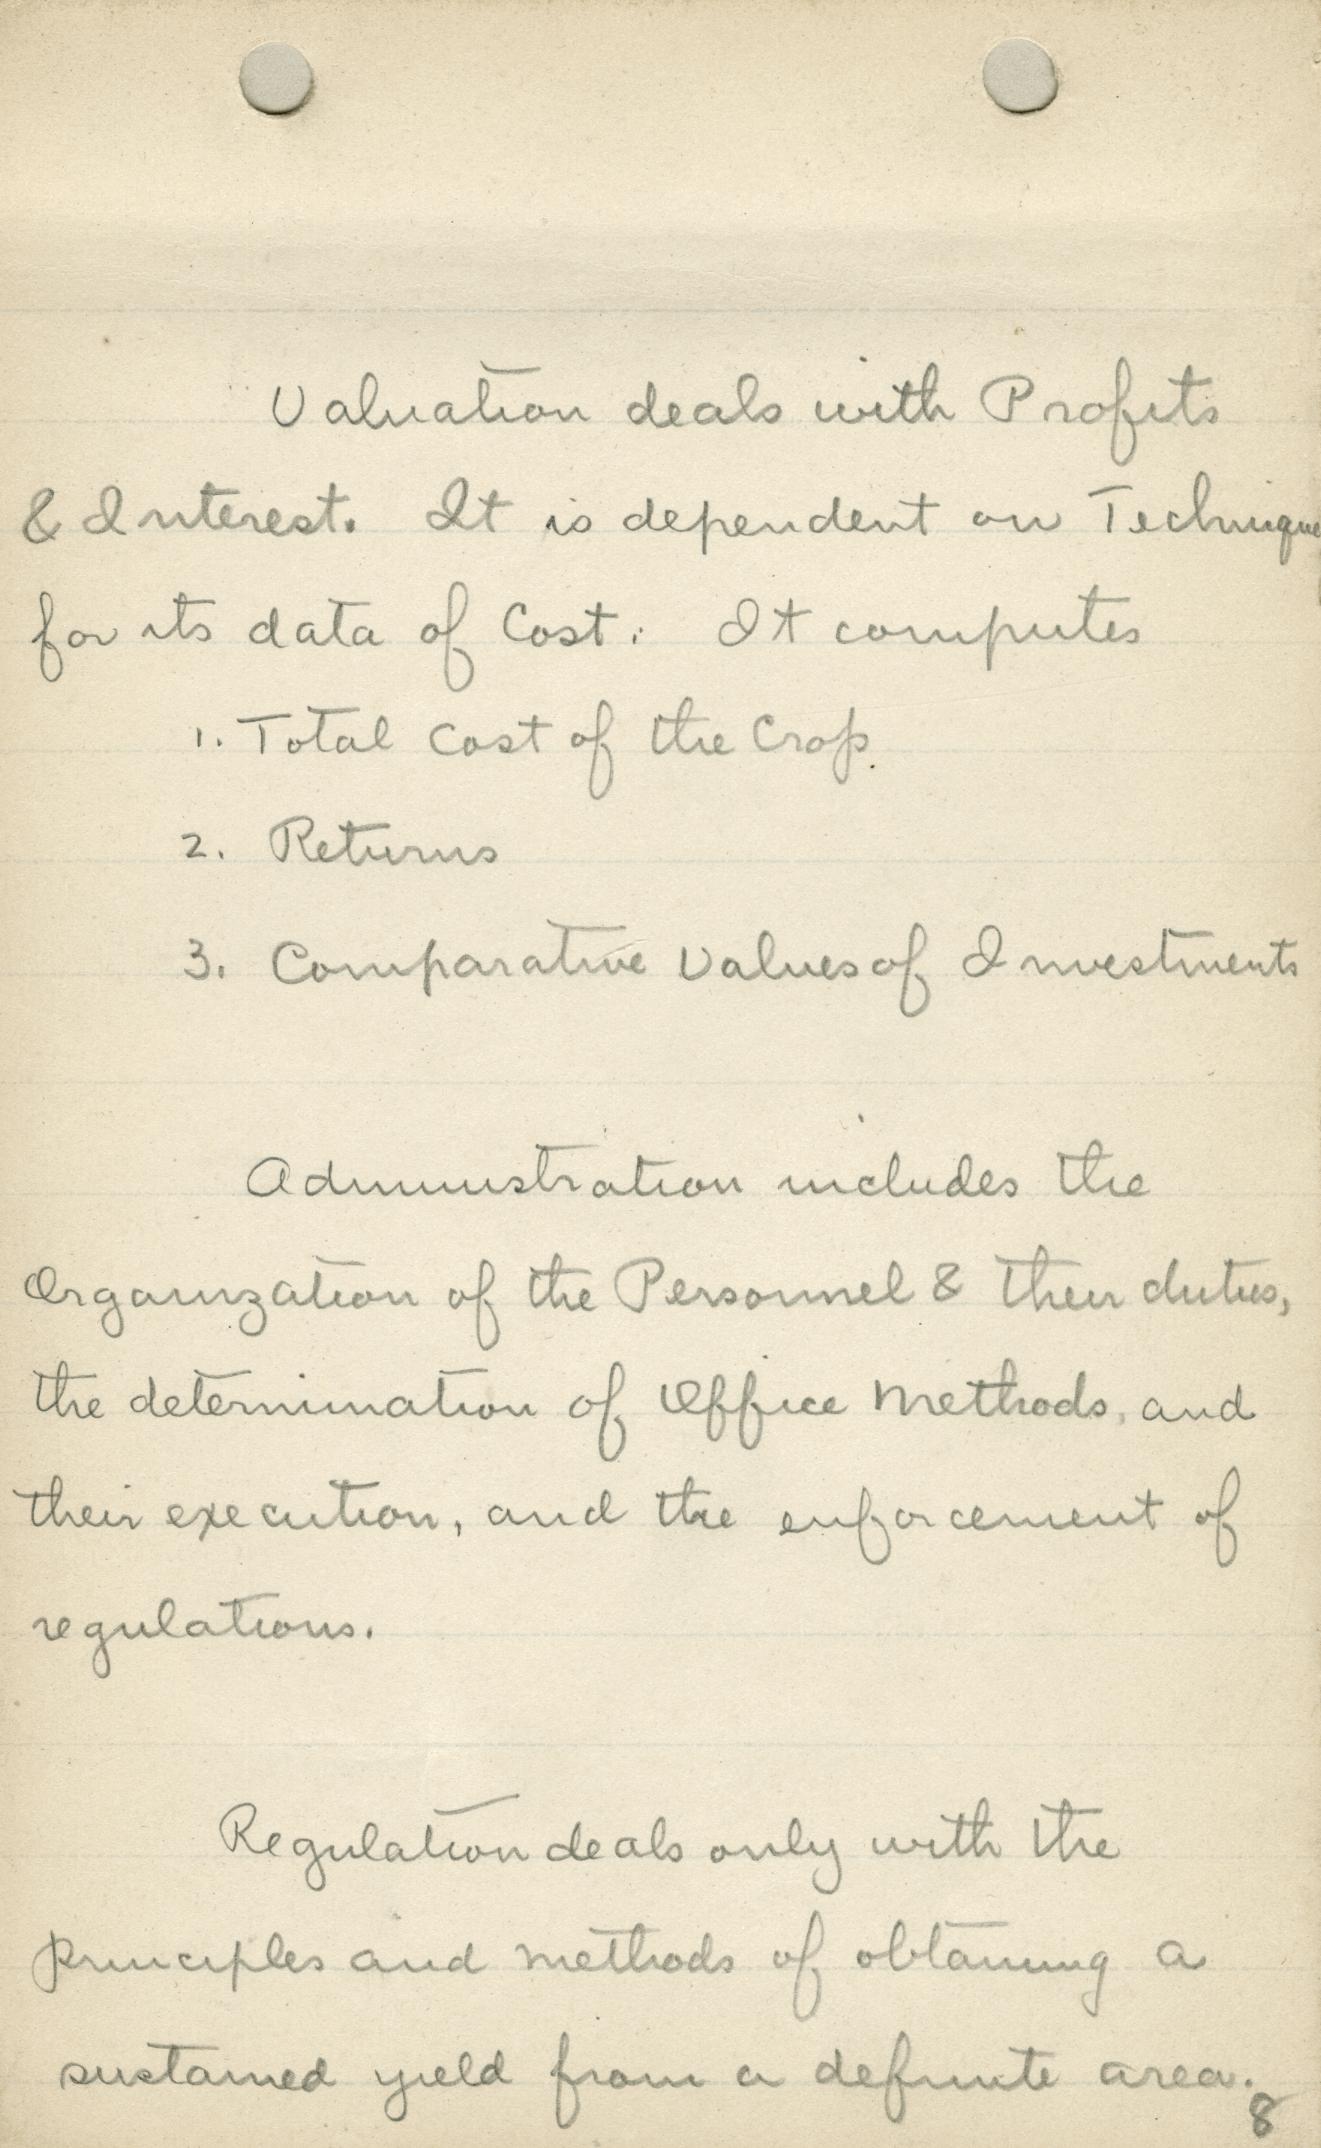 Valuation deals with Profits
& Interest. It is dependent on Technique
for its data of Cost. It computes
1. Total Cost of the Crop.
2. Returns
3. Comparative Values of Investments
Administration includes the
Organization of the Personnel & their duties,
the determination of Office Methods, and
their execution, and the enforcement of
regulations.
Regulation deals only with the
principles and methods of obtaining a
sustained yield from a definite area.
8